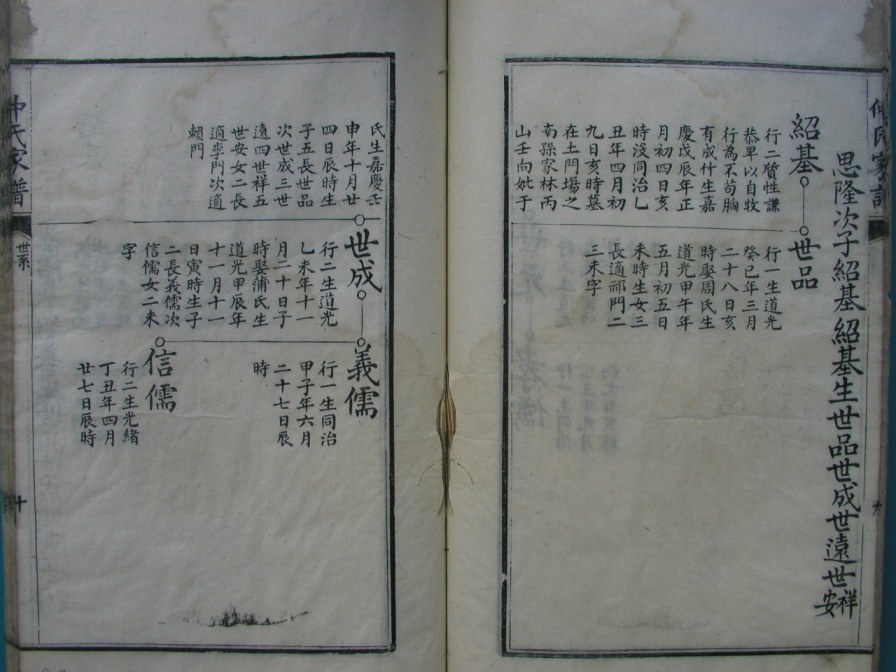 思隆次子紹基紹基生世品世成世遠世祥世安
紹基
行二質性謙
恭卑以自牧
行為不苟胸
有成什生嘉
慶戊辰年正
月初四日亥
時沒同治乙
丑年四月初
九日亥時墓
在土門塲之
南孫家林丙
山壬向妣于
世品
行一生道光
癸巳年三月
二十八日亥
時娶周氏生
道光甲午年
五月初五日
未時生女三
長適祁門二
三未字
氏生嘉慶壬
申年十月廿
四日辰時生
子五長世品
次世成三世
遠四世祥五
世安女二長
適李門次適
賴門
世成
行二生道光
乙未年十一
月二十日子
時娶蒲氏生
道光甲辰年
十一月十一
日寅時生子
二長義儒次
信儒女二未
字
義儒
行一生同治
甲子年六月
二十七日辰
時
信儒
行二生光緒
丁丑年四月
廿七日辰時
仲氏家譜
世系
十